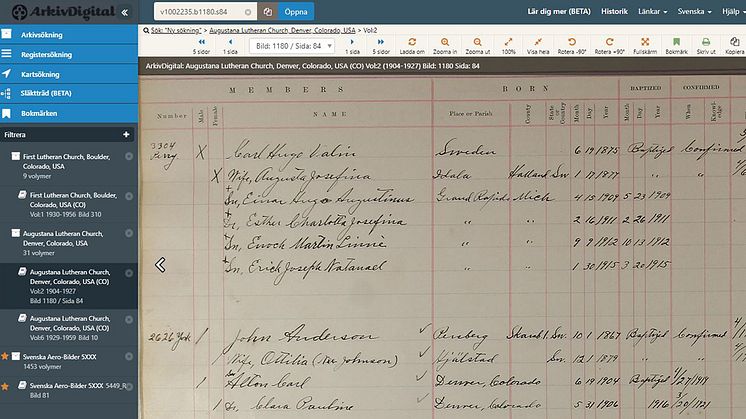 ArkivDigital «
v1002235.b1180.s84 Öppna
Lär dig mer (BETA) Historik Länkar Svenska Hjälp
Arkivsökning
Registersökning
Kartsökning
Släktträd (BETA)
Bokmärken
Filtrera +
First Lutheran Church, Boulder, Colorado, USA
9 volymer
First Lutheran Church, Boulder, Colorado, USA (CO)
Vol:1 1930-1956 Bild 310
Augustana Lutheran Church, Denver, Colorado, USA
31 volymer
Augustana Lutheran Church, Denver, Colorado, USA (CO)
Vol:2 1904-1927
Bild 1180 / Sida 84
Augustana Lutheran Church, Denver, Colorado, USA (CO)
Vol:6 1929-1959 Bild 10
Svenska Aero-Bilder 5XXX
1453 volymer
Svenska Aero-Bilder 5XXX 5449_R
Bild 81
Sök: "Ny sökning" > Augustana Lutheran Church, Denver, Colorado, USA > Vol:2
5 sidor 1 sida Bild: 1180 / Sida: 84 1 sida 5 sidor Ladda om Zooma in Zooma ut 100% Visa hela Rotera -90° Rotera +90° Fullskärm Bokmärk Skriv ut Kopiera
ArkivDigital: Augustana Lutheran Church, Denver, Colorado, USA (CO) Vol:2 (1904-1927) Bild: 1180 Sida: 84
MEMBERS BORN BAPTIZED CONFIRMED
Number Male Female NAME Place or Parish County State or Country Month Day Year Month Day Year When Knowledge
3304 Perry X Carl Hugo Valin Sweden 6 19 1875 Baptized Confirmed
X Wife, Augusta Josefina Halland Sw. 1 17 1877 " "
Sn, Einar Hugo Augustinus Grand Rapids Mich 4 15 1909 5 23 1909
Dr, Esther Charlotta Josefina " " 2 16 1911 2 26 1911
Sn, Enoch Martin Linné " " 9 9 1912 10 13 1912
Sn, Erick Joseph Natanael " " 1 30 1915 3 20 1915
2626 York 1 John Anderson Sw. 10 1 1867 Baptized Confirmed
Wife, Ottilia (née Johnson) Sw. 12 1 1879 " "
1 Sn Alton Carl Denver, Colorado 6 19 1904 Baptized 4/27/1919
1 Dr, Clara Pauline Denver, Colorado 5 31 1906 1916 3/20/1921